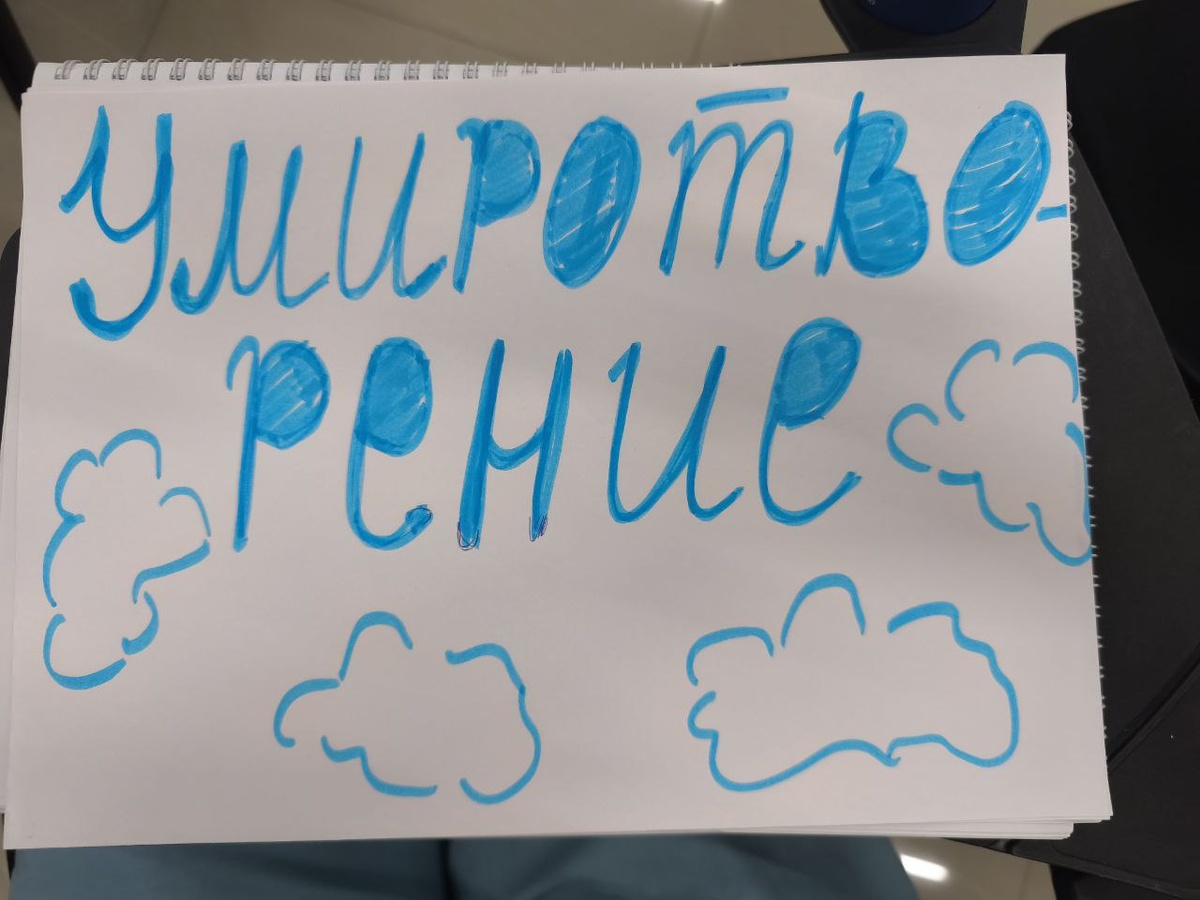 Умиротво-
рение